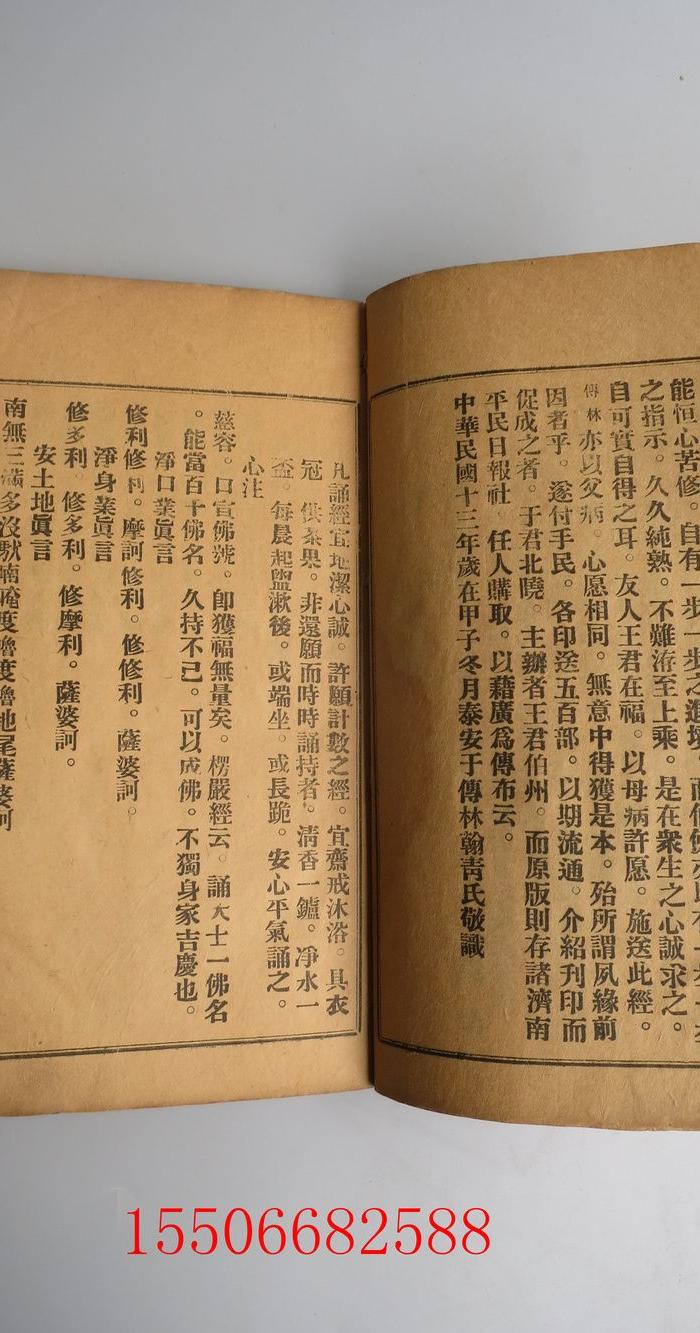 能恒心苦修。自有一步一步之進境。
之指示。久久純熟。不難洊至上乘。是在衆生之心誠求之。
自可實自得之耳。友人王君在福。以母病許愿。施送此經。
傳林亦以父病。心愿相同。無意中得獲是本。殆所謂夙緣前
因者乎。遂付手民。各印送五百部。以期流通。介紹刊印而
促成之者。于君北曉。主辦者王君伯州。而原版則存諸濟南
平民日報社。任人購取。以藉廣爲傳布云。
中華民國十三年歲在甲子冬月泰安于傳林翰靑氏敬識
凡誦經宜地潔心誠。許願計數之經。宜齋戒沐浴。具衣
冠。供茶果。非還願而時時誦持者。淸香一鑪。凈水一
盃。每晨起盥漱後。或端坐。或長跪。安心平氣誦之。
心注
慈容。口宣佛號。卽獲福無量矣。楞嚴經云。誦大士一佛名
。能當百千佛名。久持不已。可以成佛。不獨身家吉慶也。
淨口業眞言
修利修利。摩訶修利。修修利。薩婆訶。
淨身業眞言
修多利。修多利。修摩利。薩婆訶。
安土地眞言
南無三滿多沒馱喃唵度嚕度嚕地尾薩婆訶
15506682588